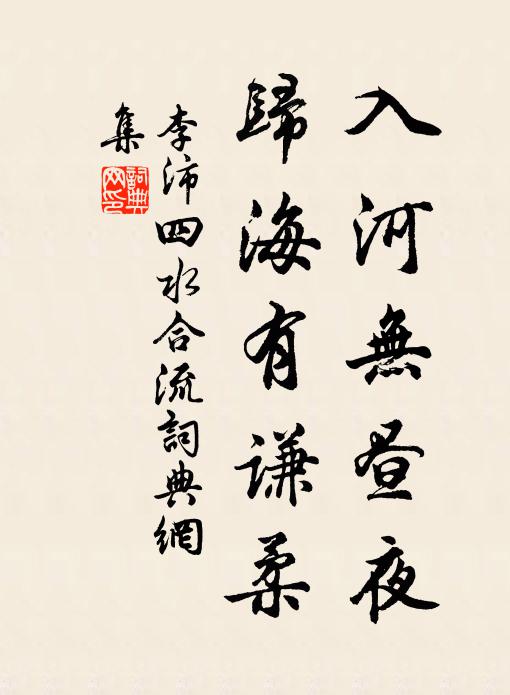 入河無昼夜
歸海有谦柔
李沛四水合流詞典網
集
詞典網印